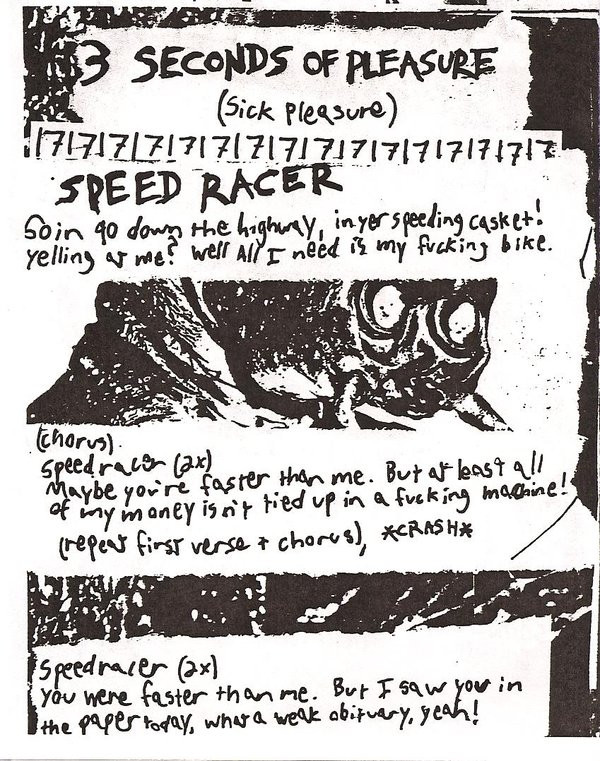 3 SECONDS OF PLEASURE
(Sick Pleasure)
|7|7|7|7|7|7|7|7|7|7|7|7|7|7|7|7|7
SPEED RACER
Goin 90 down the highway, in yer speeding casket!
yelling at me? well All I need is my fucking bike.
(chorus).
Speedracer (2x)
Maybe you're faster than me. But at least all
of my money isn't tied up in a fucking machine!
(repeat first verse + chorus), *CRASH*
Speedracer (2x)
you were faster than me. But I saw you in
the paper today, what a weak obituary, yeah!